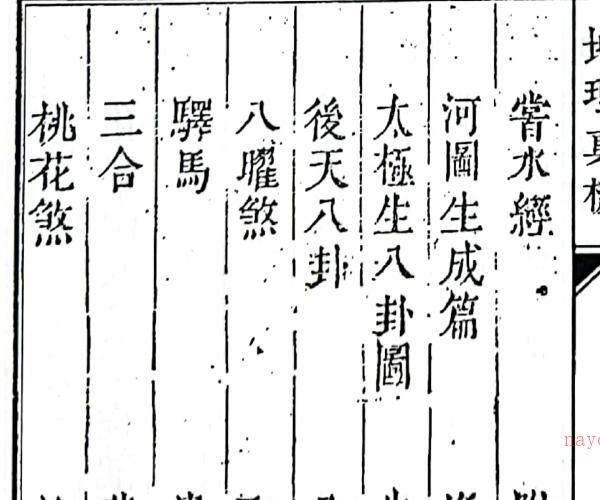 地理真機
嘗水經
河圖生成篇
太極生八卦圖
後天八卦
八曜煞
驛馬
三合
桃花煞
nayo